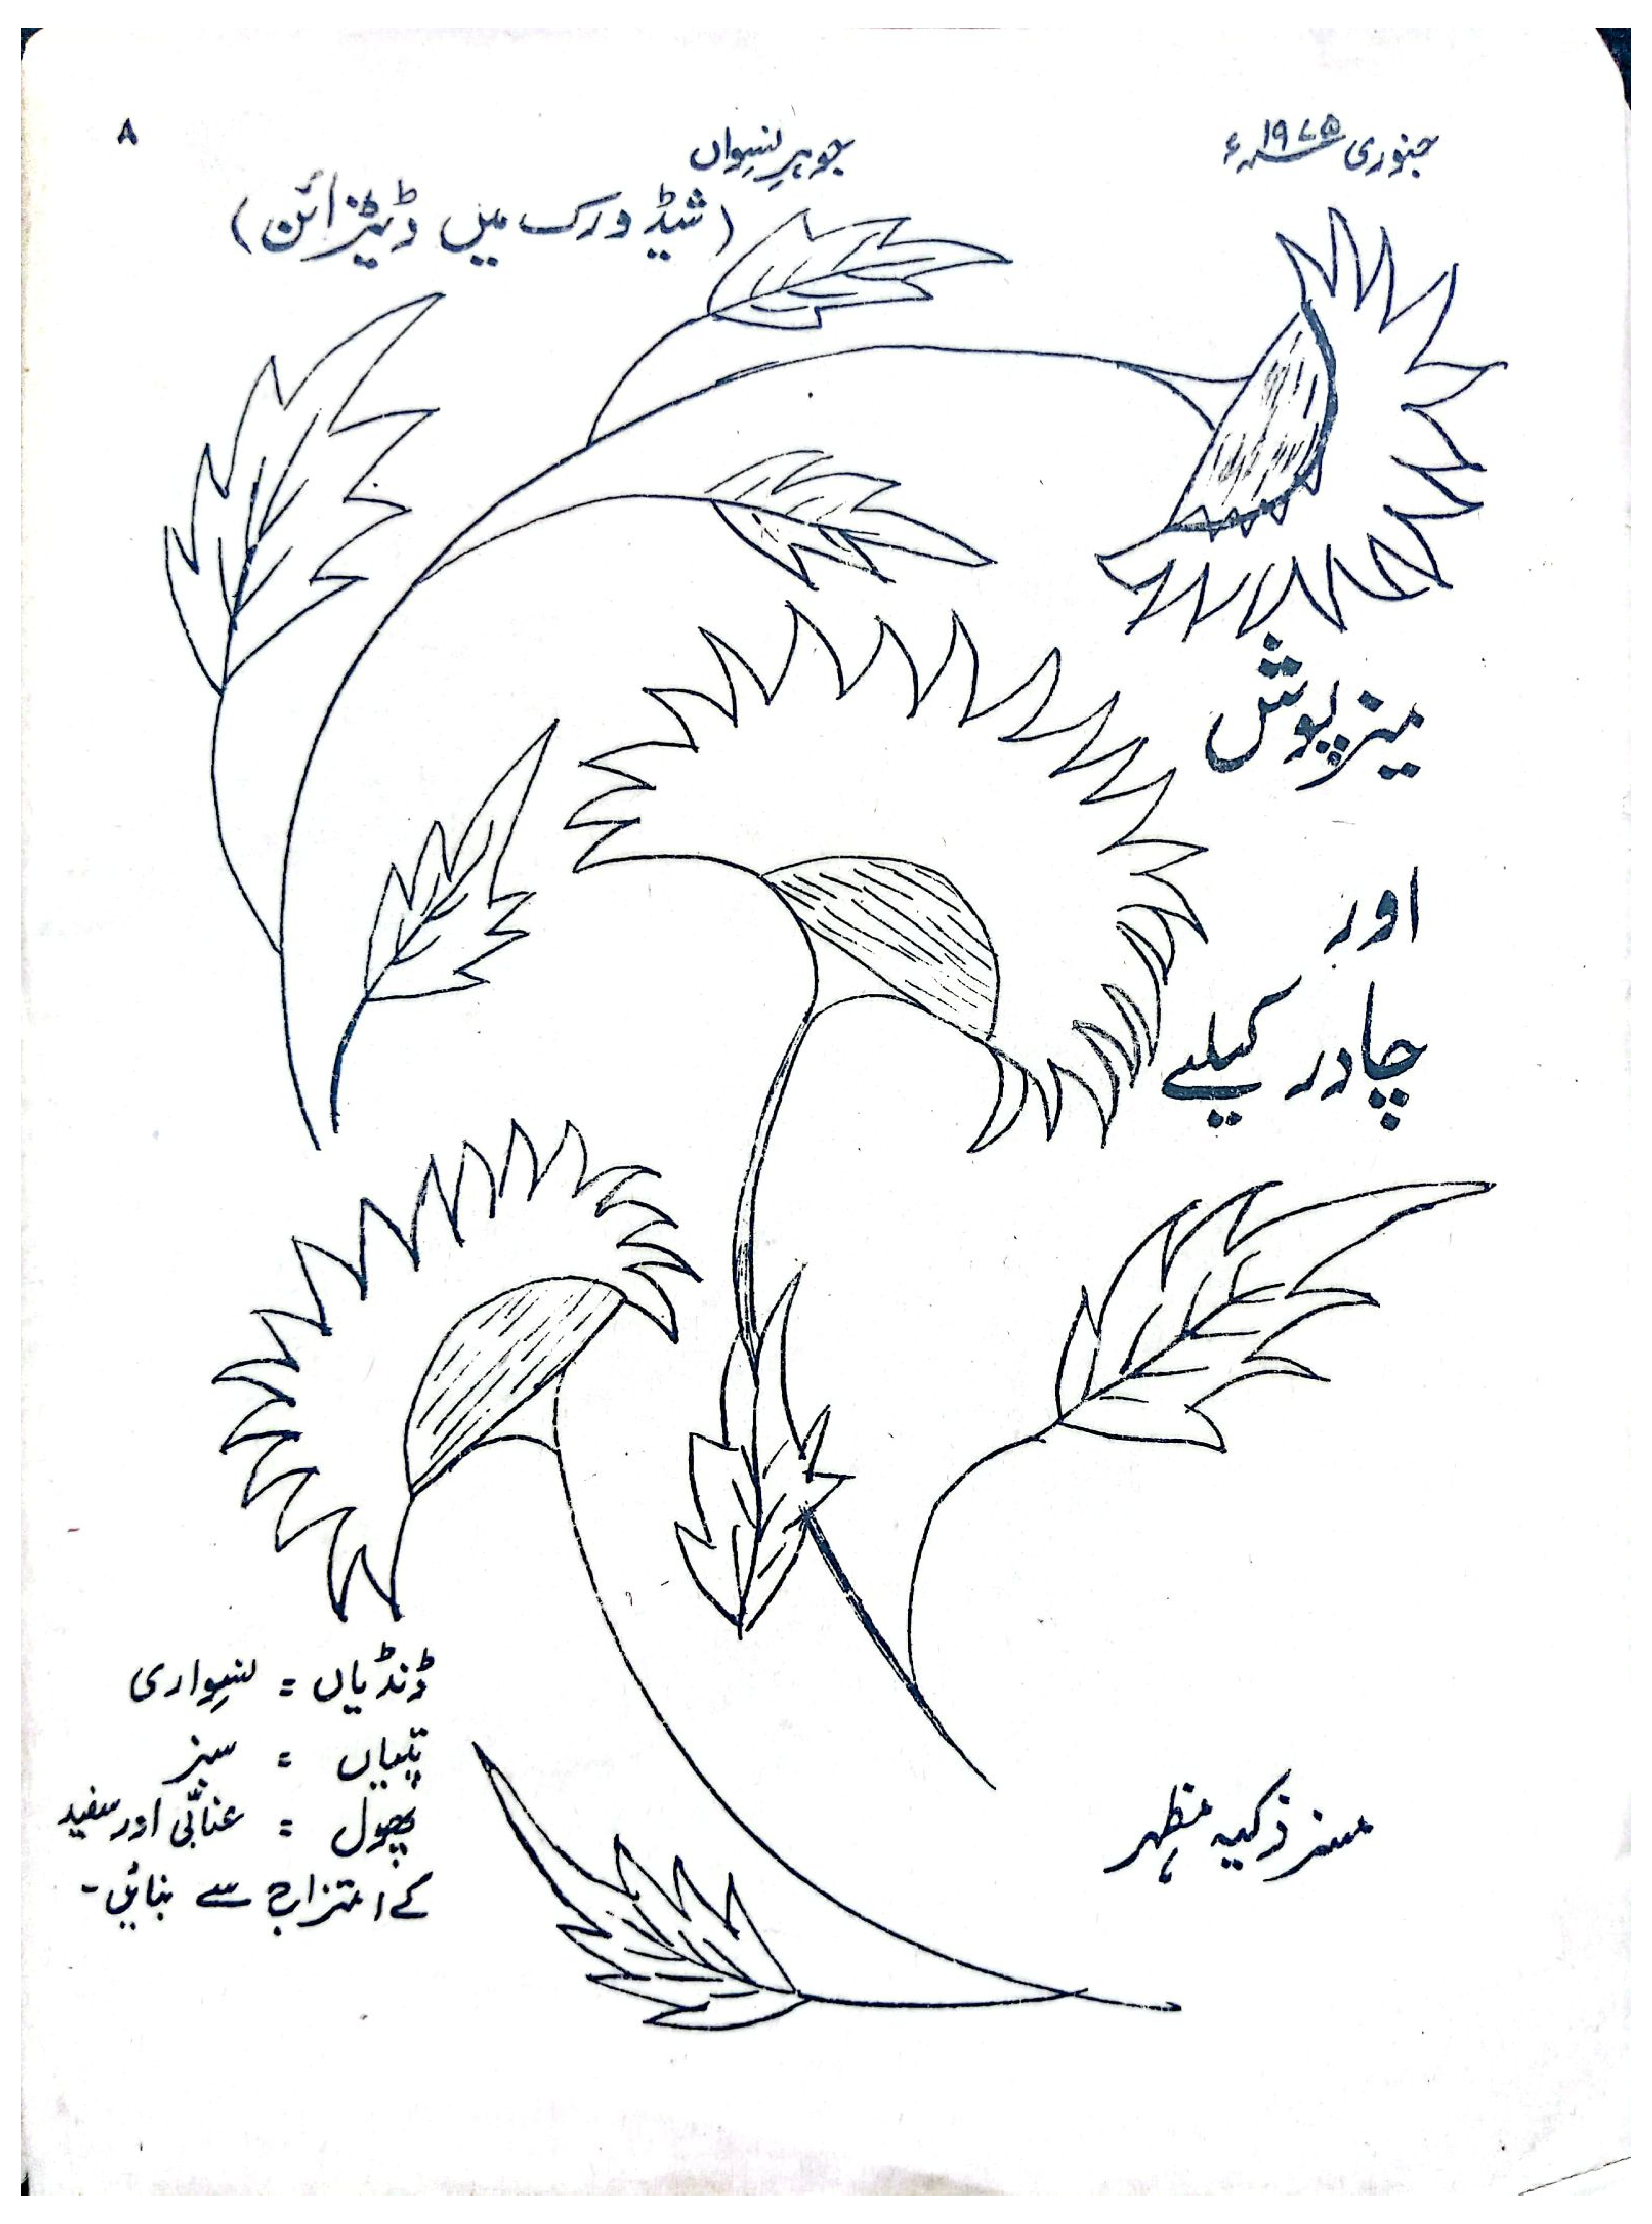 جنوری ۱۹۷۵ء
جوہرِ نسواں
۸
(شیڈ ورک میں ڈیزائن)
میز پوش
اور
چادر کیلئے
ڈنڈیاں = نسواری
پتیاں = سبز
پھول = عنابی اور سفید
کے امتزاج سے بنائیں۔
مسز ذکیہ مظہر